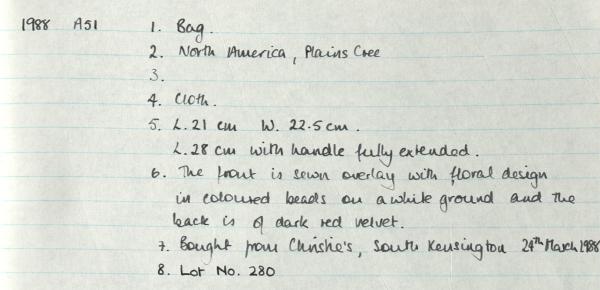 1988 A51 1. Bag.
2. North America, Plains Cree
3.
4. Cloth.
5. L. 21 cm W. 22.5 cm.
L. 28 cm with handle fully extended.
6. The front is sewn overlay with floral design
in coloured beads on a white ground and the
back is of dark red velvet.
7. Bought from Christie's, South Kensington 24th March 1988
8. Lot No. 280